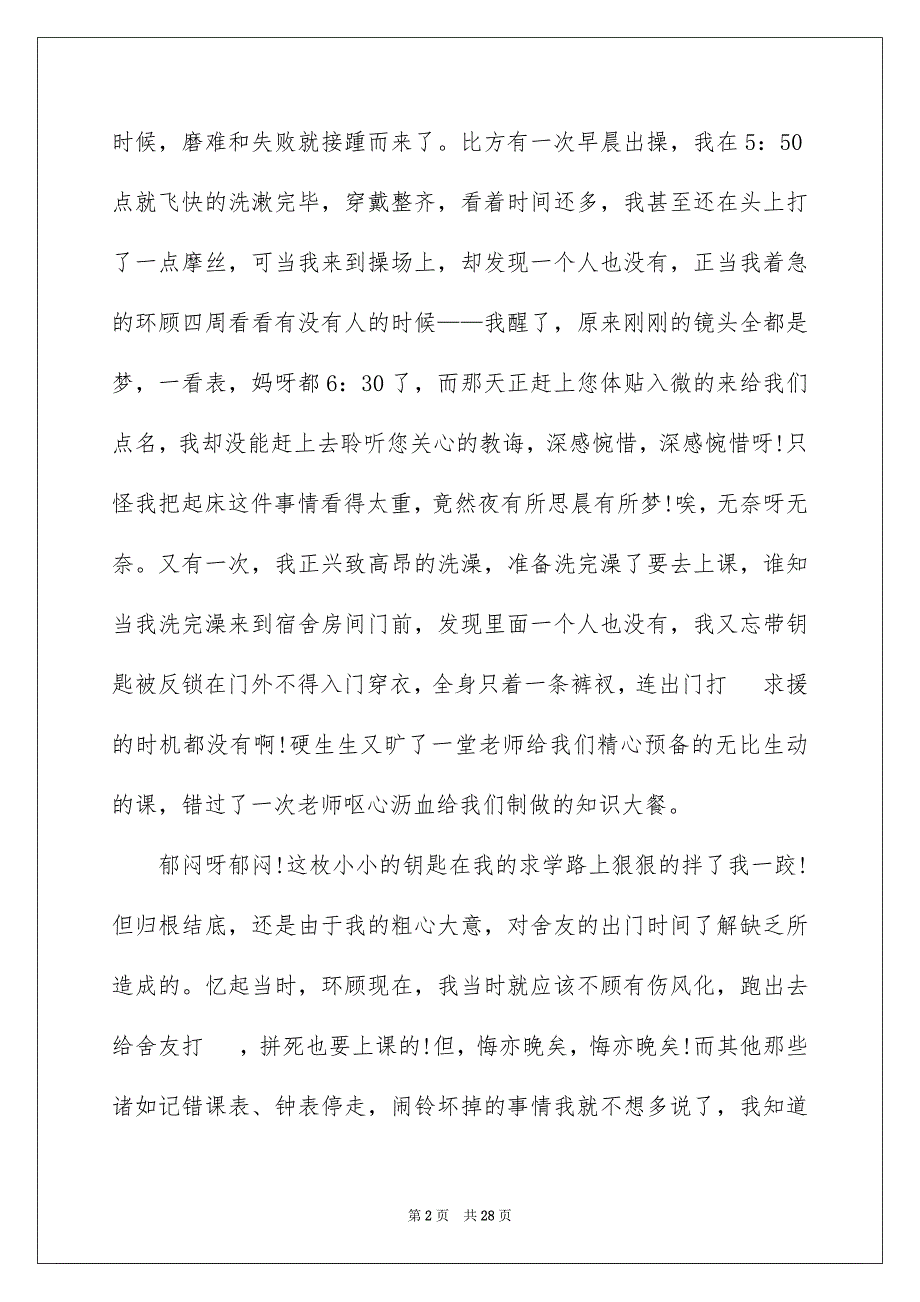 时候，磨难和失败就接踵而来了。比方有一次早晨出操，我在 5：50
点就飞快的洗漱完毕，穿戴整齐，看着时间还多，我甚至还在头上打
了一点摩丝，可当我来到操场上，却发现一个人也没有，正当我着急
的环顾四周看看有没有人的时候——我醒了，原来刚刚的镜头全都是
梦，一看表，妈呀都 6：30 了，而那天正赶上您体贴入微的来给我们
点名，我却没能赶上去聆听您关心的教诲，深感惋惜，深感惋惜呀!只
怪我把起床这件事情看得太重，竟然夜有所思晨有所梦!唉，无奈呀无
奈。又有一次，我正兴致高昂的洗澡，准备洗完澡了要去上课，谁知
当我洗完澡来到宿舍房间门前，发现里面一个人也没有，我又忘带钥
匙被反锁在门外不得入门穿衣，全身只着一条裤衩，连出门打   求援
的时机都没有啊!硬生生又旷了一堂老师给我们精心预备的无比生动
的课，错过了一次老师呕心沥血给我们制做的知识大餐。
郁闷呀郁闷!这枚小小的钥匙在我的求学路上狠狠的拌了我一跤!
但归根结底，还是由于我的粗心大意，对舍友的出门时间了解缺乏所
造成的。忆起当时，环顾现在，我当时就应该不顾有伤风化，跑出去
给舍友打   ，拼死也要上课的!但，悔亦晚矣，悔亦晚矣!而其他那些
诸如记错课表、钟表停走，闹铃坏掉的事情我就不想多说了，我知道
第 2 页 共 28 页